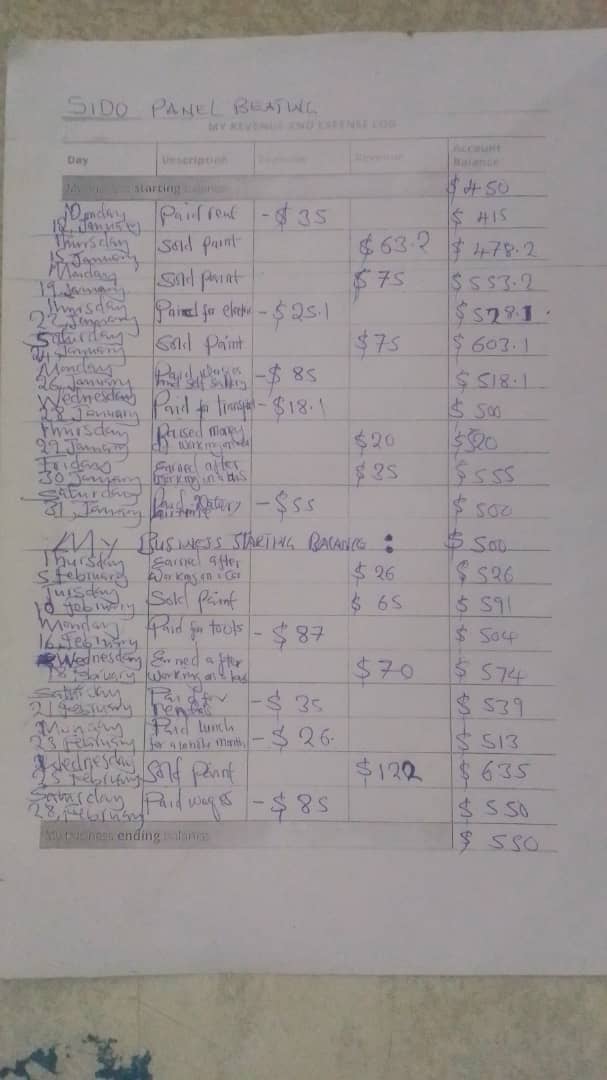 SIDO PANEL BEATING
MY REVENUE AND EXPENSE LOG
Day Description Expense Revenue Account Balance
My business starting balance $450
Monday 12, January Paid rent -$35 $415
Thursday 15 January Sold paint $63.2 $478.2
Monday 19 January Sold paint $75 $553.2
Thursday 22, January Paid for -$25.1 $528.1
Saturday 24 January Sold paint $75 $603.1
Monday 26 January Paid and self -$85 $518.1
Wednesday 28 January Paid for -$18.1 $500
Thursday 29 January Raised money $20 $520
Friday 30 January Earned after working on a bus $35 $555
Saturday 31, January Paid water -$55 $500
My BUSINESS STARTING BALANCE : $500
Thursday 5 February Earned after working on a car $26 $526
Tuesday 10 February Sold Paint $65 $591
Monday 16, February Paid for tools -$87 $504
Wednesday 18, Earned after working on a bus $70 $574
Saturday 21 February Paid for -$35 $539
Monday 23 February Paid lunch for a whole month -$26 $513
Wednesday 25 February Sold paint $122 $635
Saturday 28, February Paid wages -$85 $550
My business ending balance $550